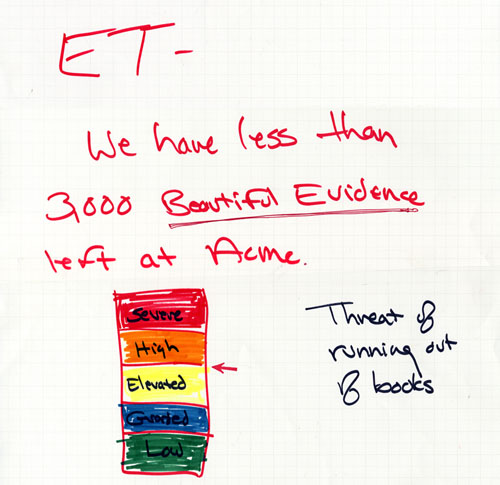 ET-
We have less than
3,000 Beautiful Evidence
left at Acme.
Severe
High
Elevated
Guarded
Low
Threat of
running out
of books